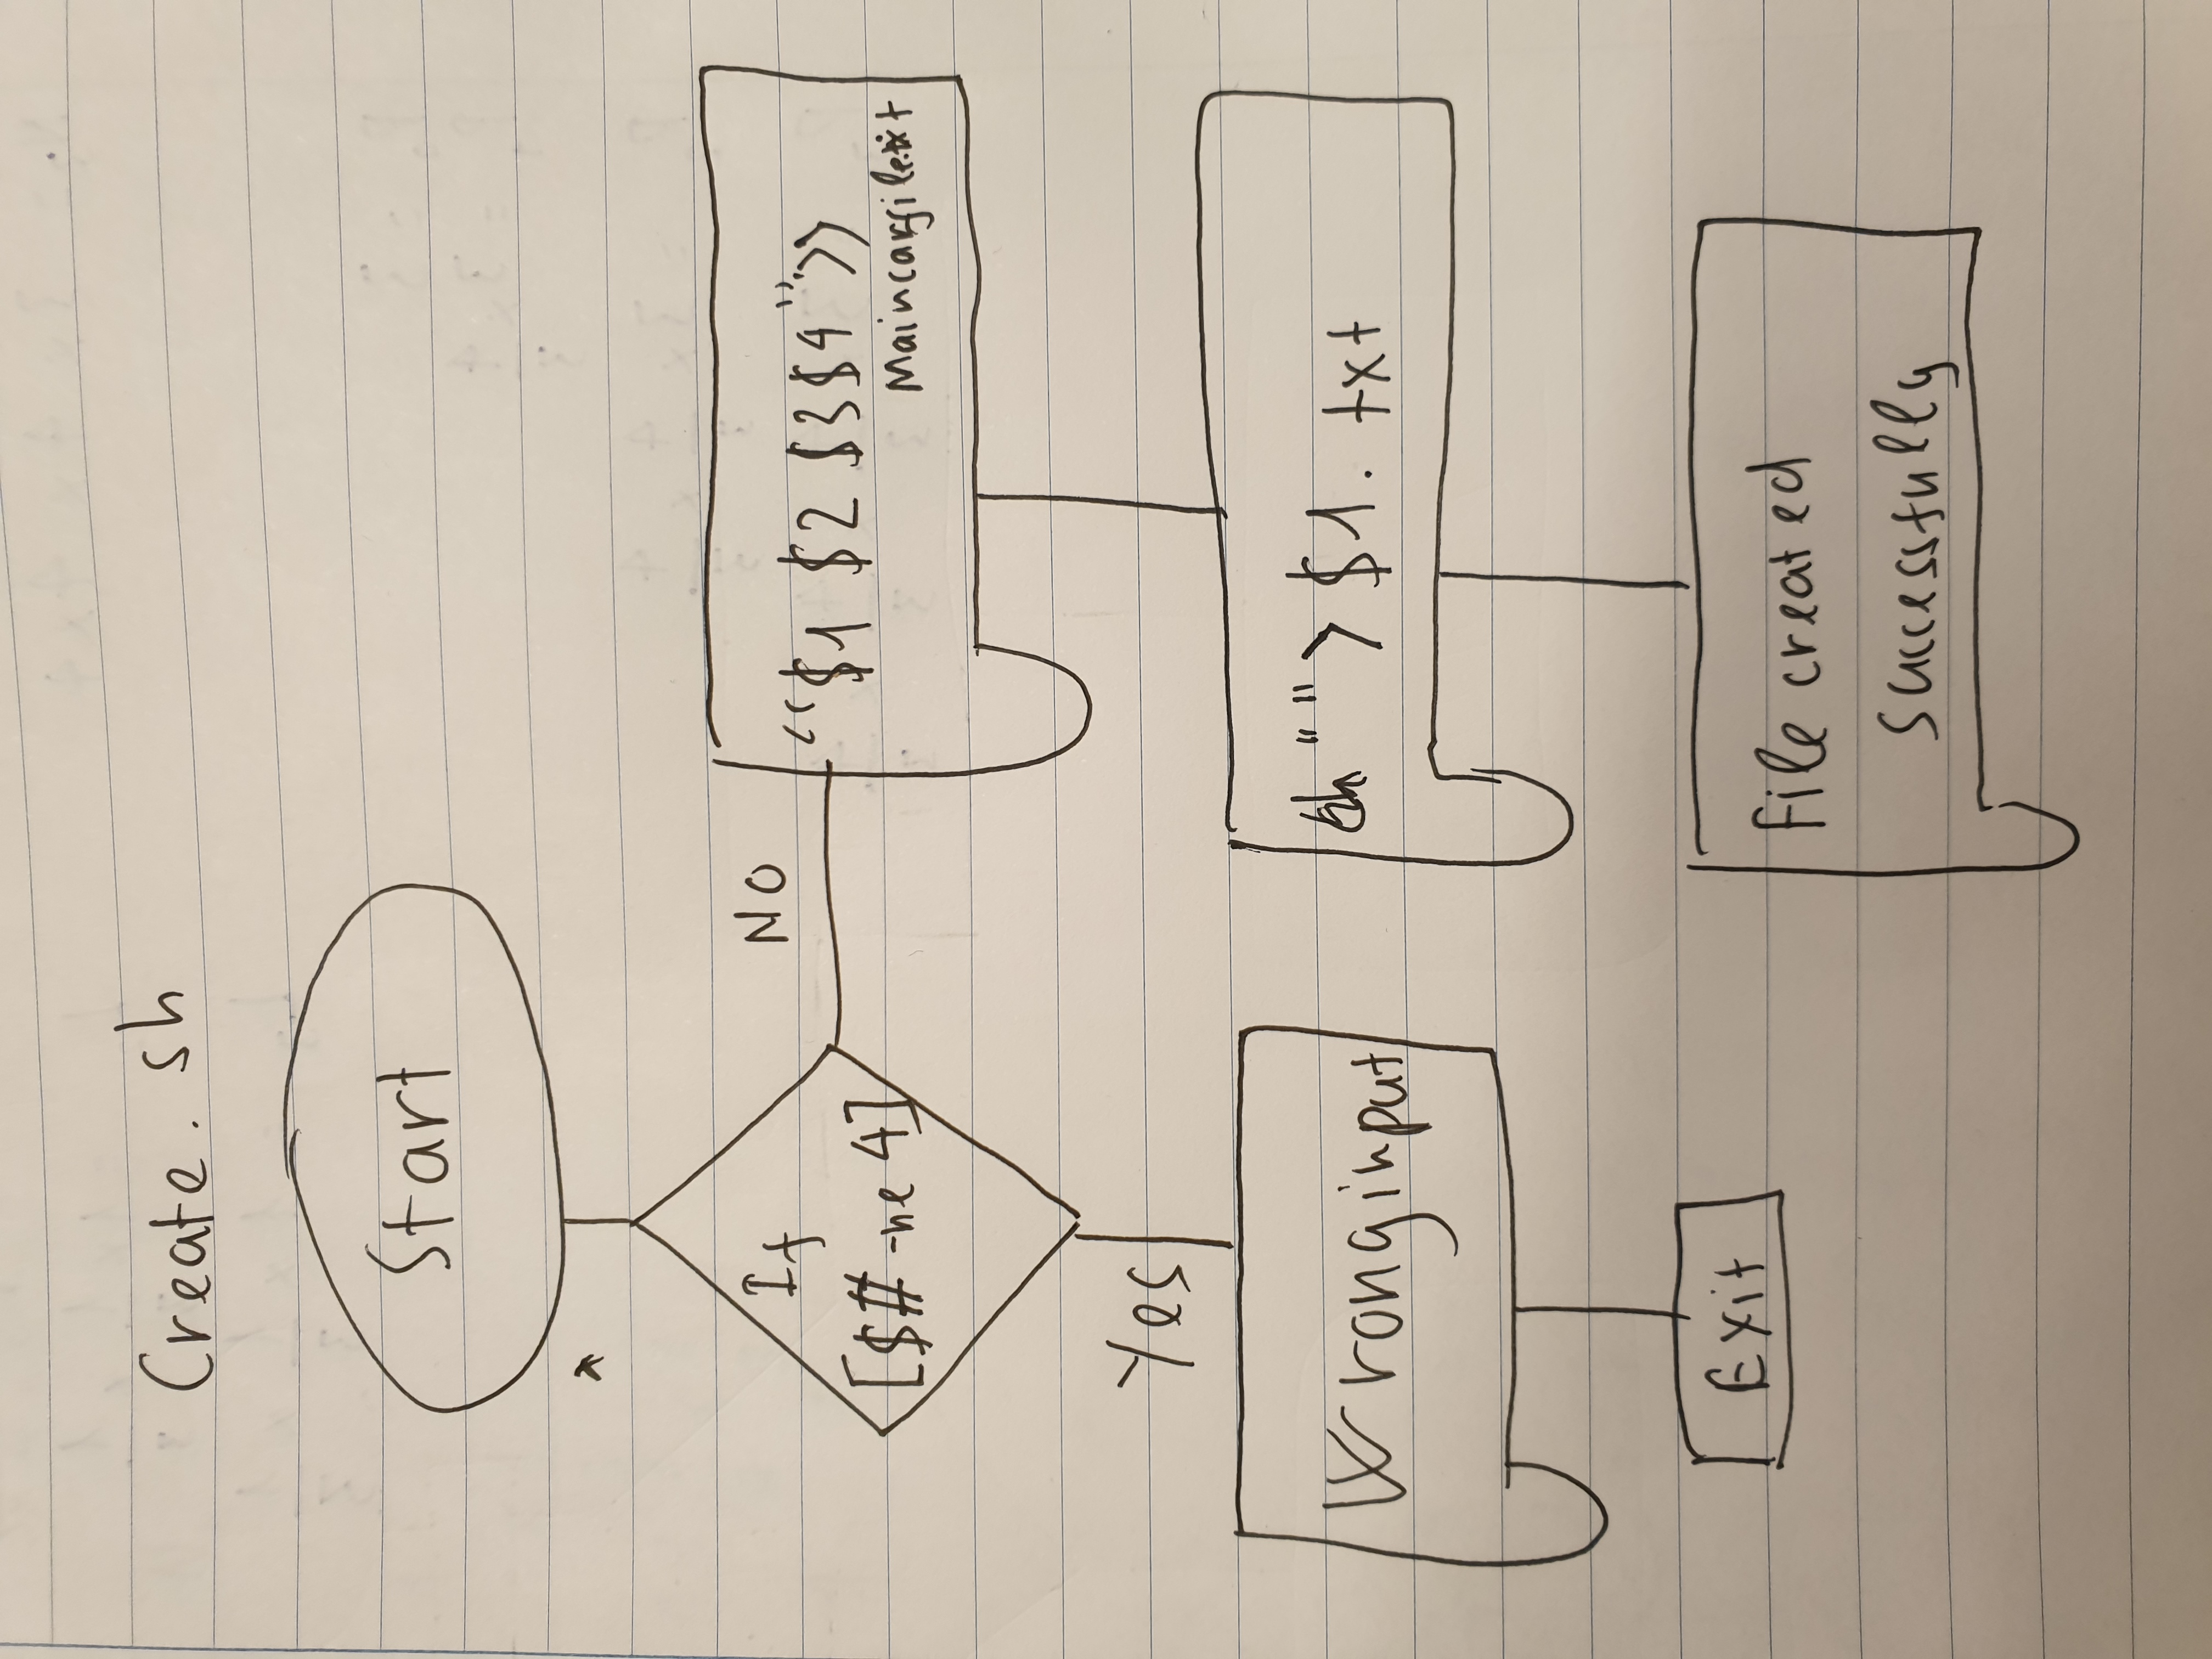 Create.sh
Start
If
[$# -ne 4]
NO
"$1 $2 $3 $4" >>
Maincarfile.txt
Yes
Wrong input
"" > $1.txt
Exit
File created
successfully